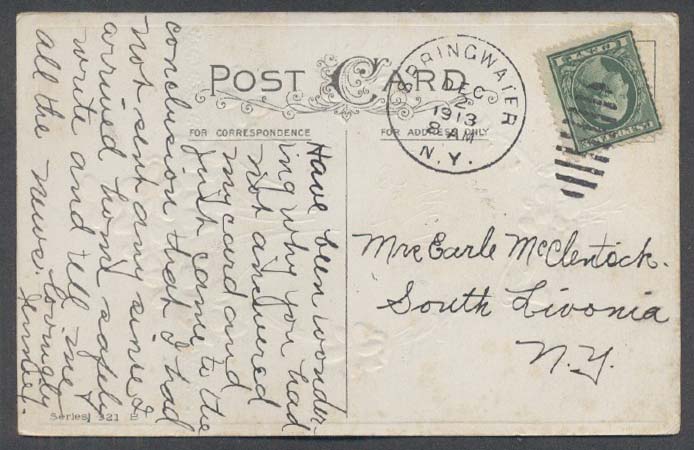 POST CARD
FOR CORRESPONDENCE
FOR ADDRESS ONLY
SPRINGWATER
DEC
2
1913
8 AM
N.Y.
Have been wonder-
ing why you had
not answered
my card and
just came to the
conclusion that I had
not sent any since I
arrived home safely
write and tell me
all the news. Lovingly
Mrs Earle McClentock.
South Livonia
N.Y.
Series 321 E